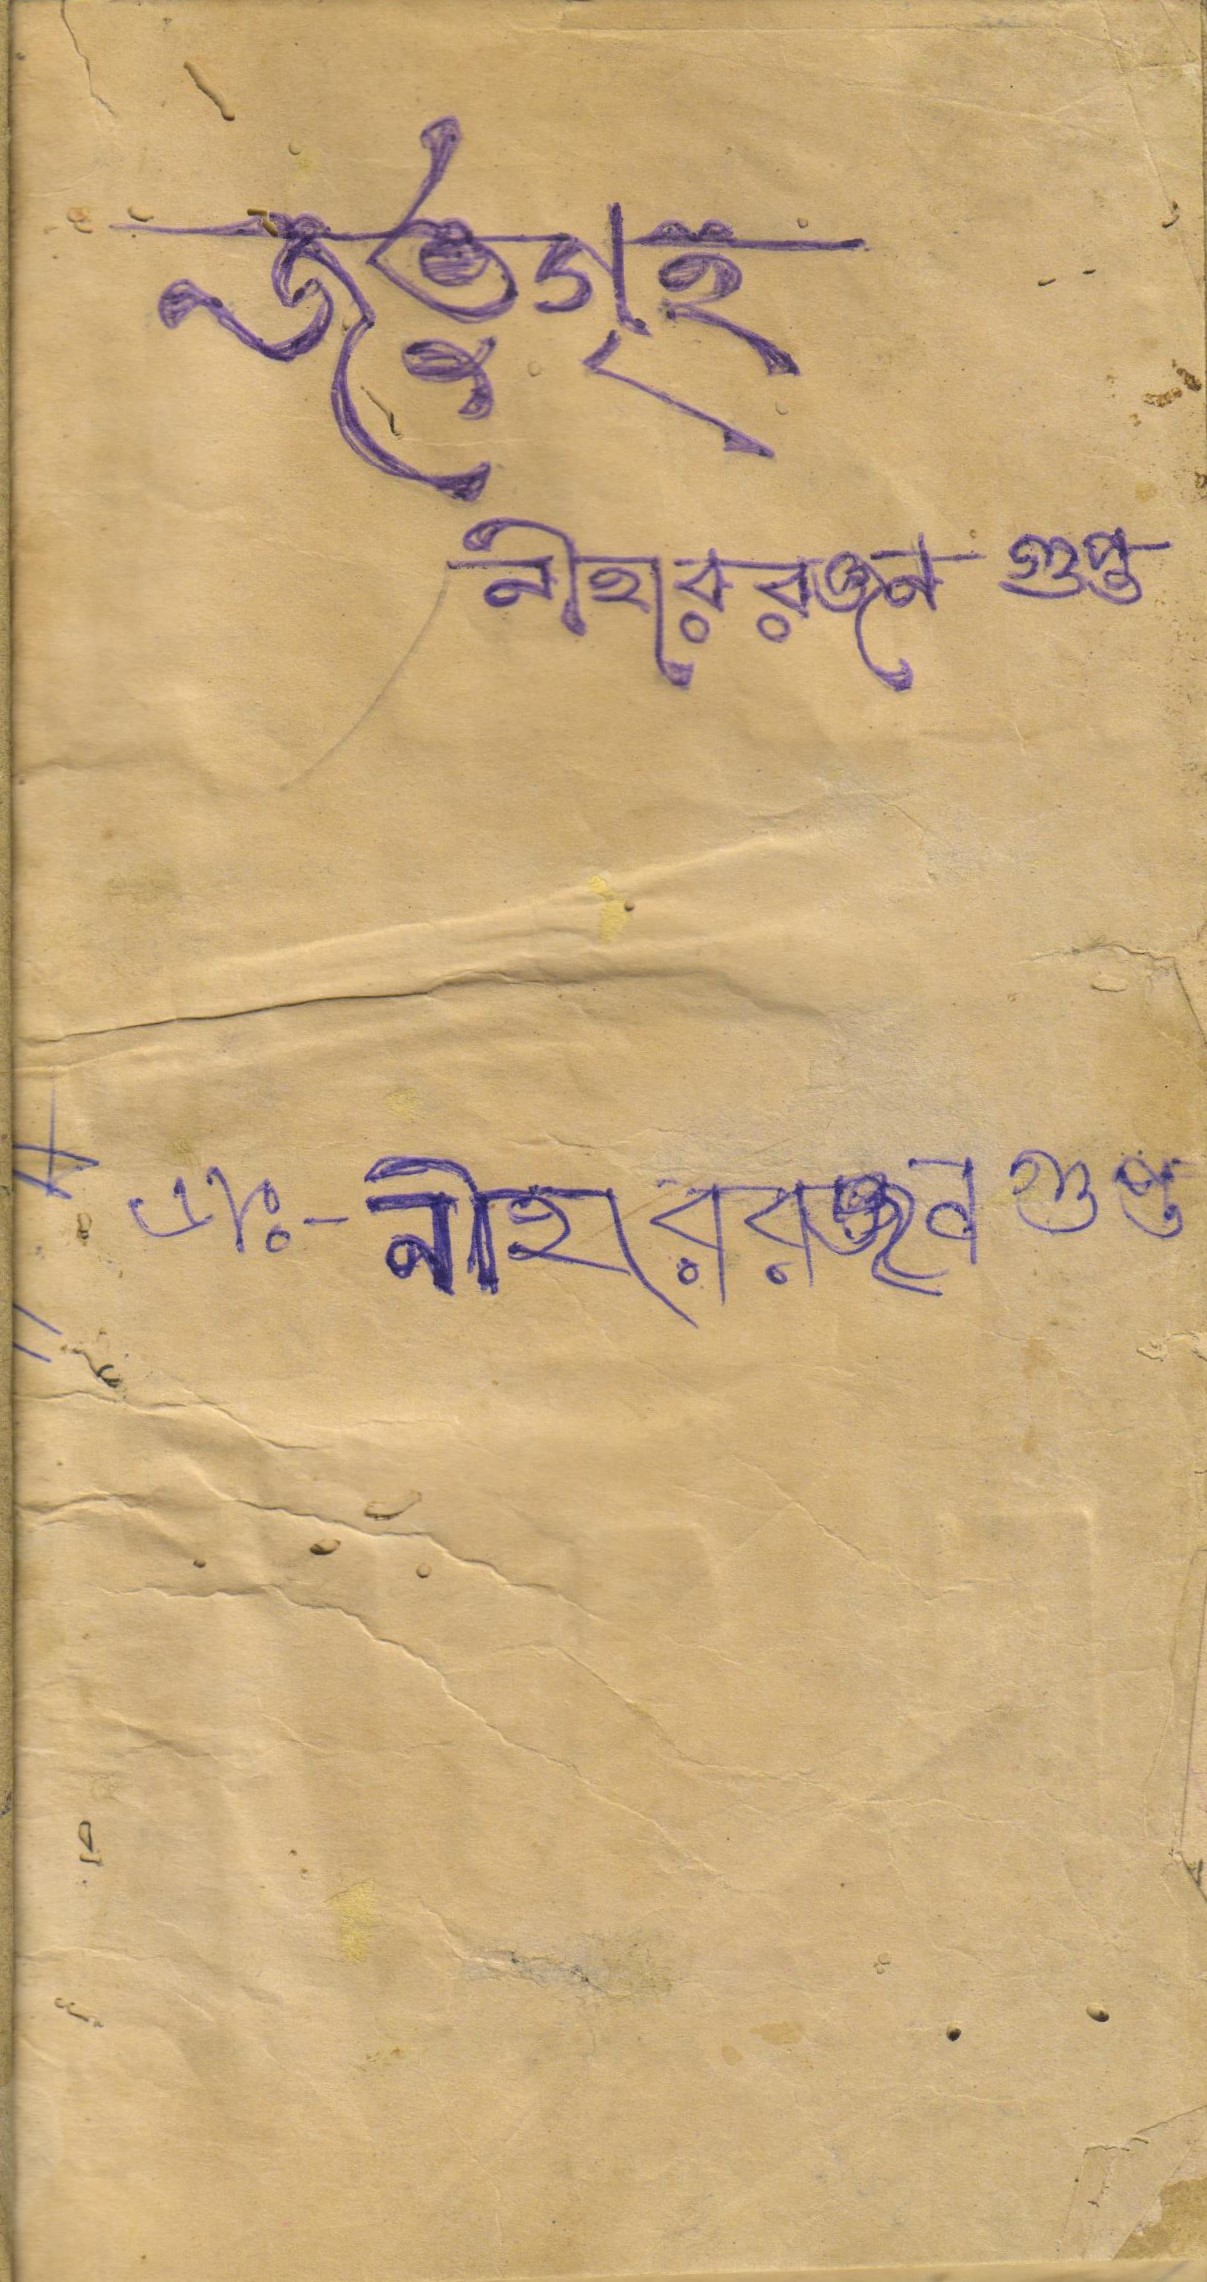 জতুগৃহ
নীহাররঞ্জন গুপ্ত
ডাঃ- নীহাররঞ্জন গুপ্ত